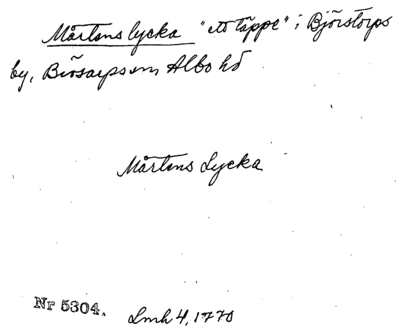 Mårtens lycka "ett täppe" i Björstorps
by, Brösarps sn Albo hd
Mårtens Lycka
Nr 5304. Lmh 4, 1770